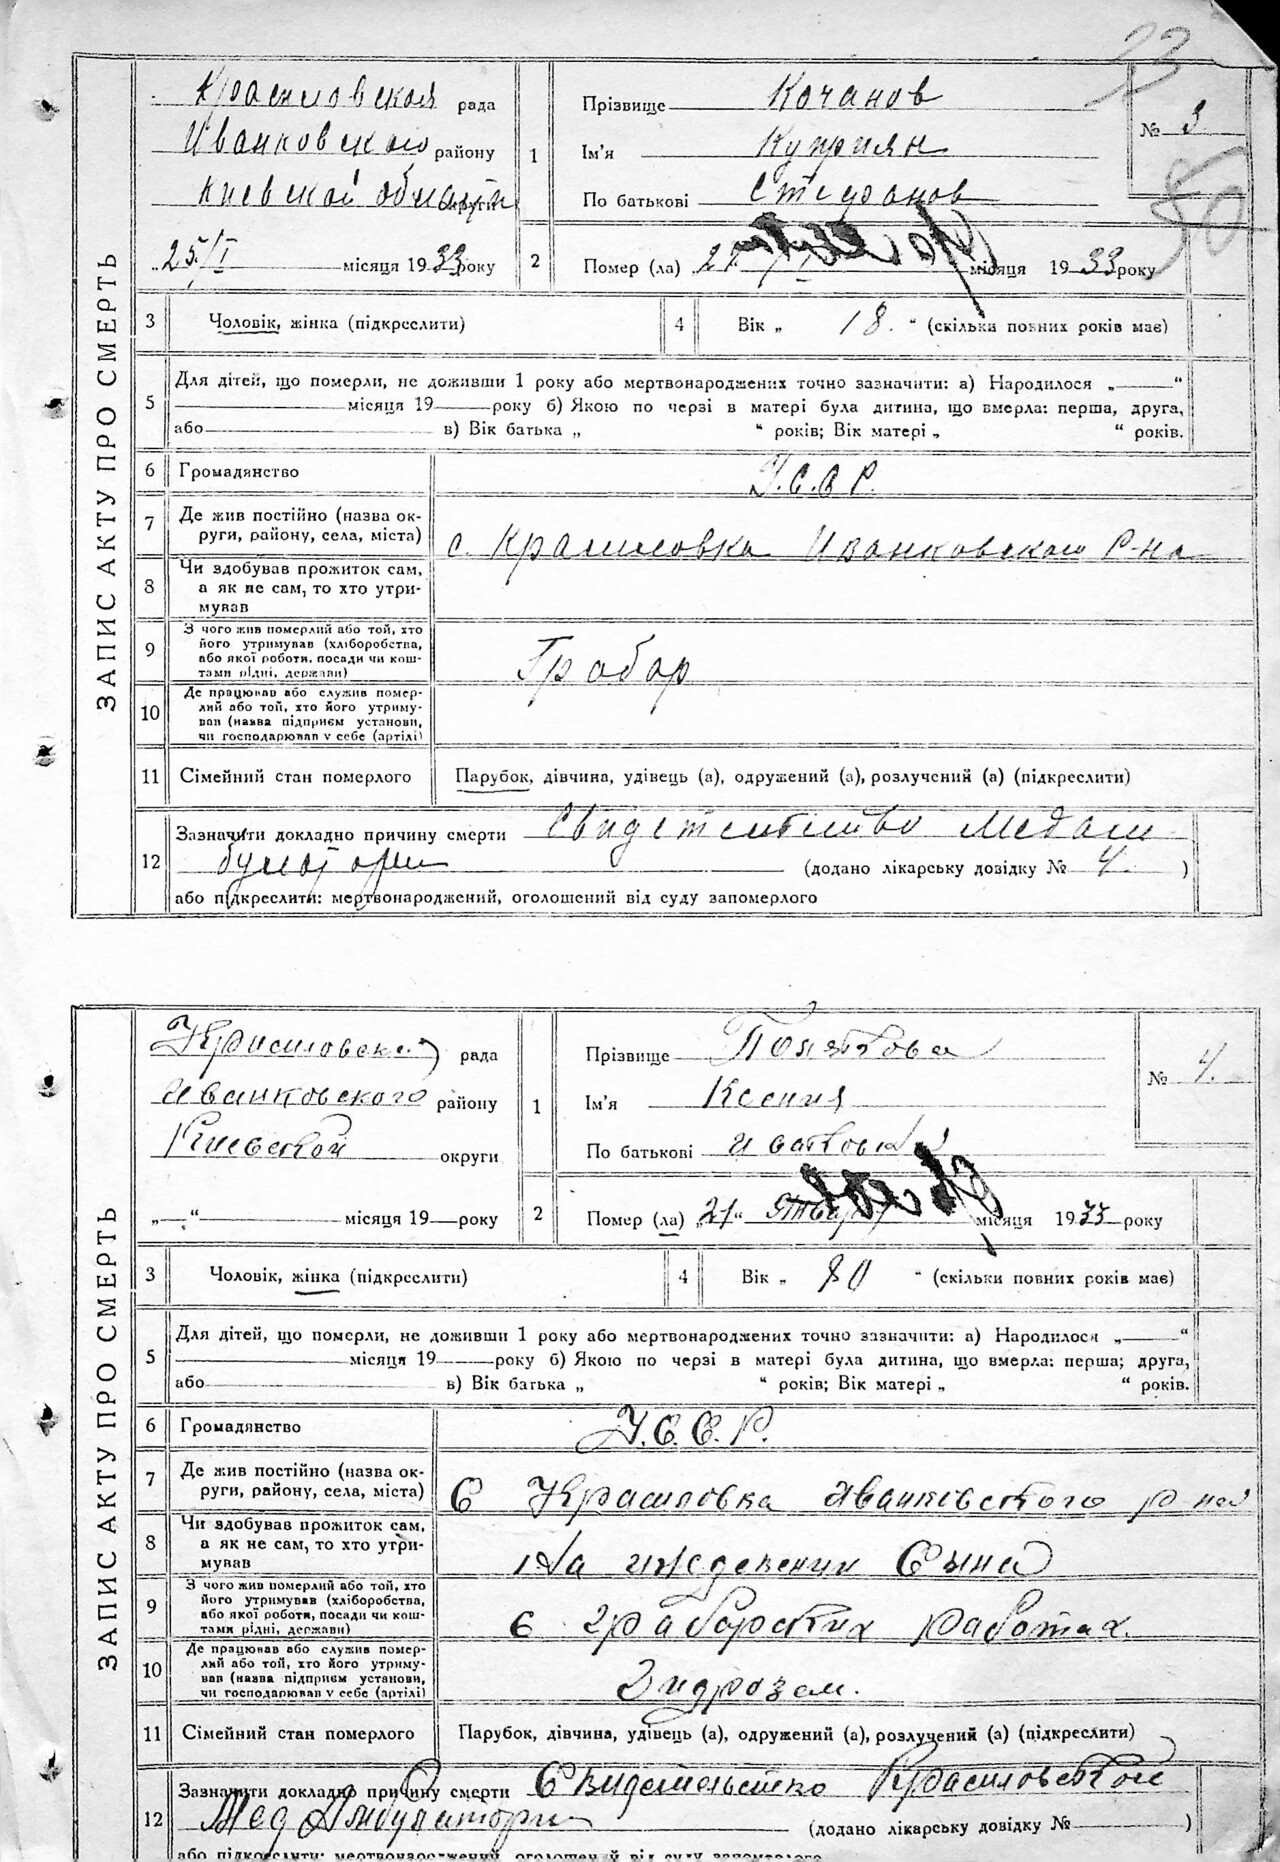 ЗАПИС АКТУ ПРО СМЕРТЬ
Красиловская рада
Иванковского району
Киевской области
„25/I місяця 1933 року
1
Прізвище Кочанов
Ім'я Куприян
По батькові Стефанов
№ 3
2
Помер (ла) 21. I місяця 1933 року
3 Чоловік, жінка (підкреслити)
4 Вік „ 18. “ (скільки повних років має)
5 Для дітей, що померли, не доживши 1 року або мертвонароджених точно зазначити: а) Народилося „ “
місяця 19 року б) Якою по черзі в матері була дитина, що вмерла: перша, друга,
або в) Вік батька „ “ років; Вік матері „ “ років.
6 Громадянство У.С.С.Р.
7 Де жив постійно (назва ок-
руги, району, села, міста) с. Красиловка Иванковского р-на
8 Чи здобував прожиток сам,
а як не сам, то хто утри-
мував
9 З чого жив померлий або той, хто
його утримував (хліборобства,
або якої роботи, посади чи кош-
тами рідні, держави) Грабар
10 Де працював або служив помер-
лий або той, хто його утриму-
вав (назва підприєм установи,
чи господарював у себе (артілі)
11 Сімейний стан померлого Парубок, дівчина, удівець (а), одружений (а), розлучений (а) (підкреслити)
12 Зазначити докладно причину смерти Свидетельство Медам
булатории (додано лікарську довідку № 4. )
або підкреслити: мертвонароджений, оголошений від суду запомерлого
ЗАПИС АКТУ ПРО СМЕРТЬ
Красиловская рада
Иванковского району
Киевской округи
„—“ місяця 19—року
1
Прізвище
Ім'я Ксения
По батькові
№ 4.
2
Помер (ла) „21“ января місяця 1933 року
3 Чоловік, жінка (підкреслити)
4 Вік „ 80 “ (скільки повних років має)
5 Для дітей, що померли, не доживши 1 року або мертвонароджених точно зазначити: а) Народилося „ “
місяця 19 року б) Якою по черзі в матері була дитина, що вмерла: перша; друга,
або в) Вік батька „ “ років; Вік матері „ “ років.
6 Громадянство У.С.С.Р.
7 Де жив постійно (назва ок-
руги, району, села, міста) С Красиловка Иванковского р на
8 Чи здобував прожиток сам,
а як не сам, то хто утри-
мував На иждевении Сына
9 З чого жив померлий або той, хто
його утримував (хліборобства,
або якої роботи, посади чи кош-
тами рідні, держави) С грабарских работах.
10 Де працював або служив помер-
лий або той, хто його утриму-
вав (назва підприєм установи,
чи господарював у себе (артілі)
11 Сімейний стан померлого Парубок, дівчина, удівець (а), одружений (а), розлучений (а) (підкреслити)
12 Зазначити докладно причину смерти Свидетельство Красиловской
Мед Амбулатории (додано лікарську довідку № )
або підкреслити: мертвонароджений, оголошений від суду запомерлого